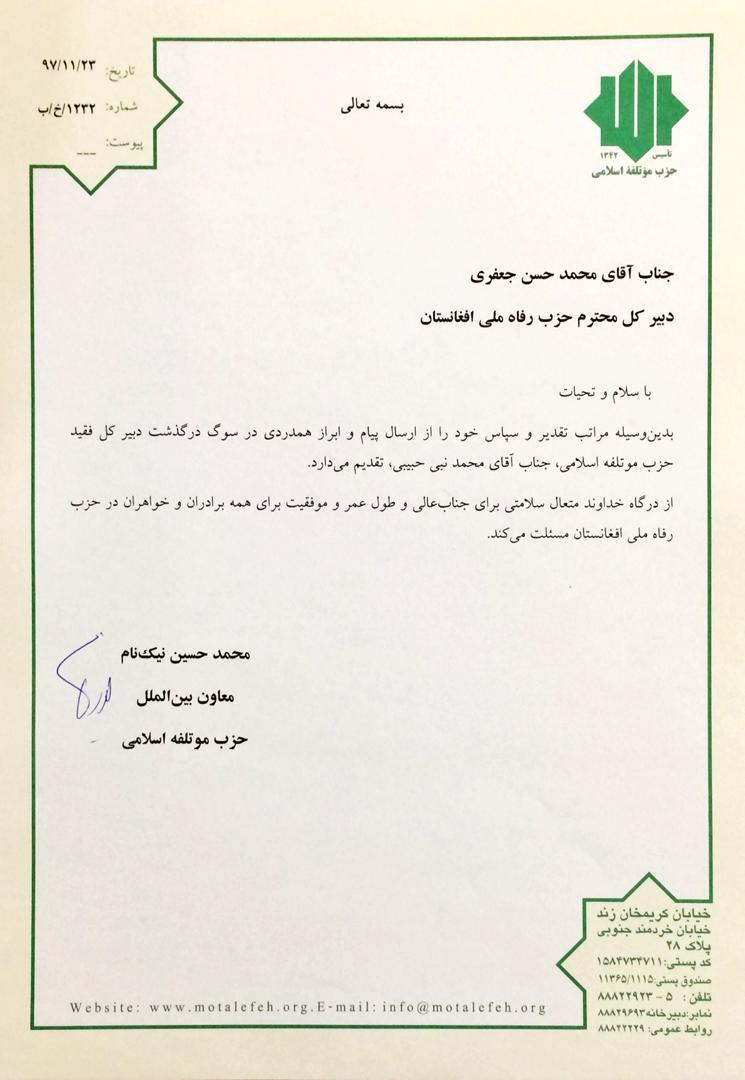 تاریخ: ۹۷/۱۱/۲۳
شماره: ۱۲۳۲/خ/ب
پیوست: ---
بسمه تعالی
تأسیس ۱۳۴۲
حزب مؤتلفهٔ اسلامی
جناب آقای محمد حسن جعفری
دبیر کل محترم حزب رفاه ملی افغانستان
با سلام و تحیات
بدین‌وسیله مراتب تقدیر و سپاس خود را از ارسال پیام و ابراز همدردی در سوگ درگذشت دبیر کل فقید
حزب موتلفه اسلامی، جناب آقای محمد نبی حبیبی، تقدیم می‌دارد.
از درگاه خداوند متعال سلامتی برای جناب‌عالی و طول عمر و موفقیت برای همه برادران و خواهران در حزب
رفاه ملی افغانستان مسئلت می‌کند.
محمد حسین نیک‌نام
معاون بین‌الملل
حزب موتلفه اسلامی
خیابان کریمخان زند
خیابان خردمند جنوبی
پلاک ۲۸
کد پستی: ۱۵۸۴۷۳۴۷۱۱
صندوق پستی: ۱۱۳۶۵/۱۱۱۵
تلفن: ۵ - ۸۸۸۲۲۹۲۳
نمابر:دبیرخانه ۸۸۸۲۹۶۹۳
روابط عمومی: ۸۸۸۲۲۲۲۹
Website: www.motalefeh.org.E-mail: info@motalefeh.org